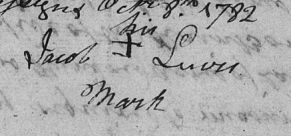 Octr 8th 1782
his
Jacob + Lewis
Mark